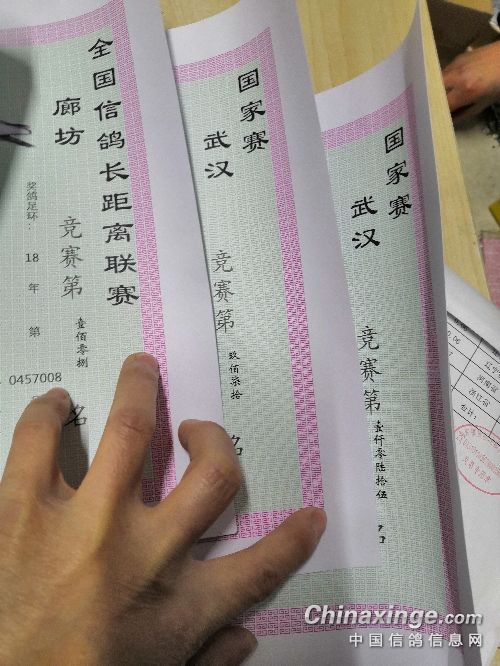 全国信鸽长距离联赛
廊坊
竞赛第
壹佰零捌
名
奖鸽足环：
18
年
第
0457008
国家赛
武汉
竞赛第
玖佰柒拾
名
国家赛
武汉
竞赛第
壹仟零陆拾伍
Chinaxinge.com
中国信鸽信息网